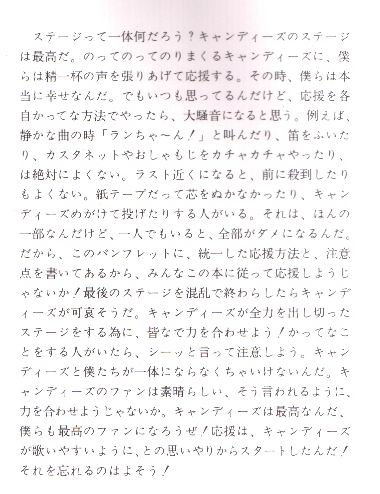 ステージって一体何だろう？キャンディーズのステージ
は最高だ。のってのってのりまくるキャンディーズに、僕
らは精一杯の声を張りあげて応援する。その時、僕らは本
当に幸せなんだ。でもいつも思ってるんだけど、応援を各
自かってな方法でやったら、大騒音になると思う。例えば、
静かな曲の時「ランちゃ～ん！」と叫んだり、笛をふいた
り、カスタネットやおしゃもじをカチャカチャやったり、
は絶対によくない。ラスト近くになると、前に殺到したり
もよくない。紙テープだって芯をぬかなかったり、キャン
ディーズめがけて投げたりする人がいる。それは、ほんの
一部なんだけど、一人でもいると、全部がダメになるんだ。
だから、このパンフレットに、統一した応援方法と、注意
点を書いてあるから、みんなこの本に従って応援しようじ
ゃないか！最後のステージを混乱で終わらしたらキャンデ
ィーズが可哀そうだ。キャンディーズが全力を出し切った
ステージをする為に、皆なで力を合わせよう！かってなこ
とをする人がいたら、シーッと言って注意しよう。キャン
ディーズと僕たちが一体にならなくちゃいけないんだ。キ
ャンディーズのファンは素晴らしい、そう言われるように、
力を合わせようじゃないか。キャンディーズは最高なんだ、
僕らも最高のファンになろうぜ！応援は、キャンディーズ
が歌いやすいように、との思いやりからスタートしたんだ！
それを忘れるのはよそう！